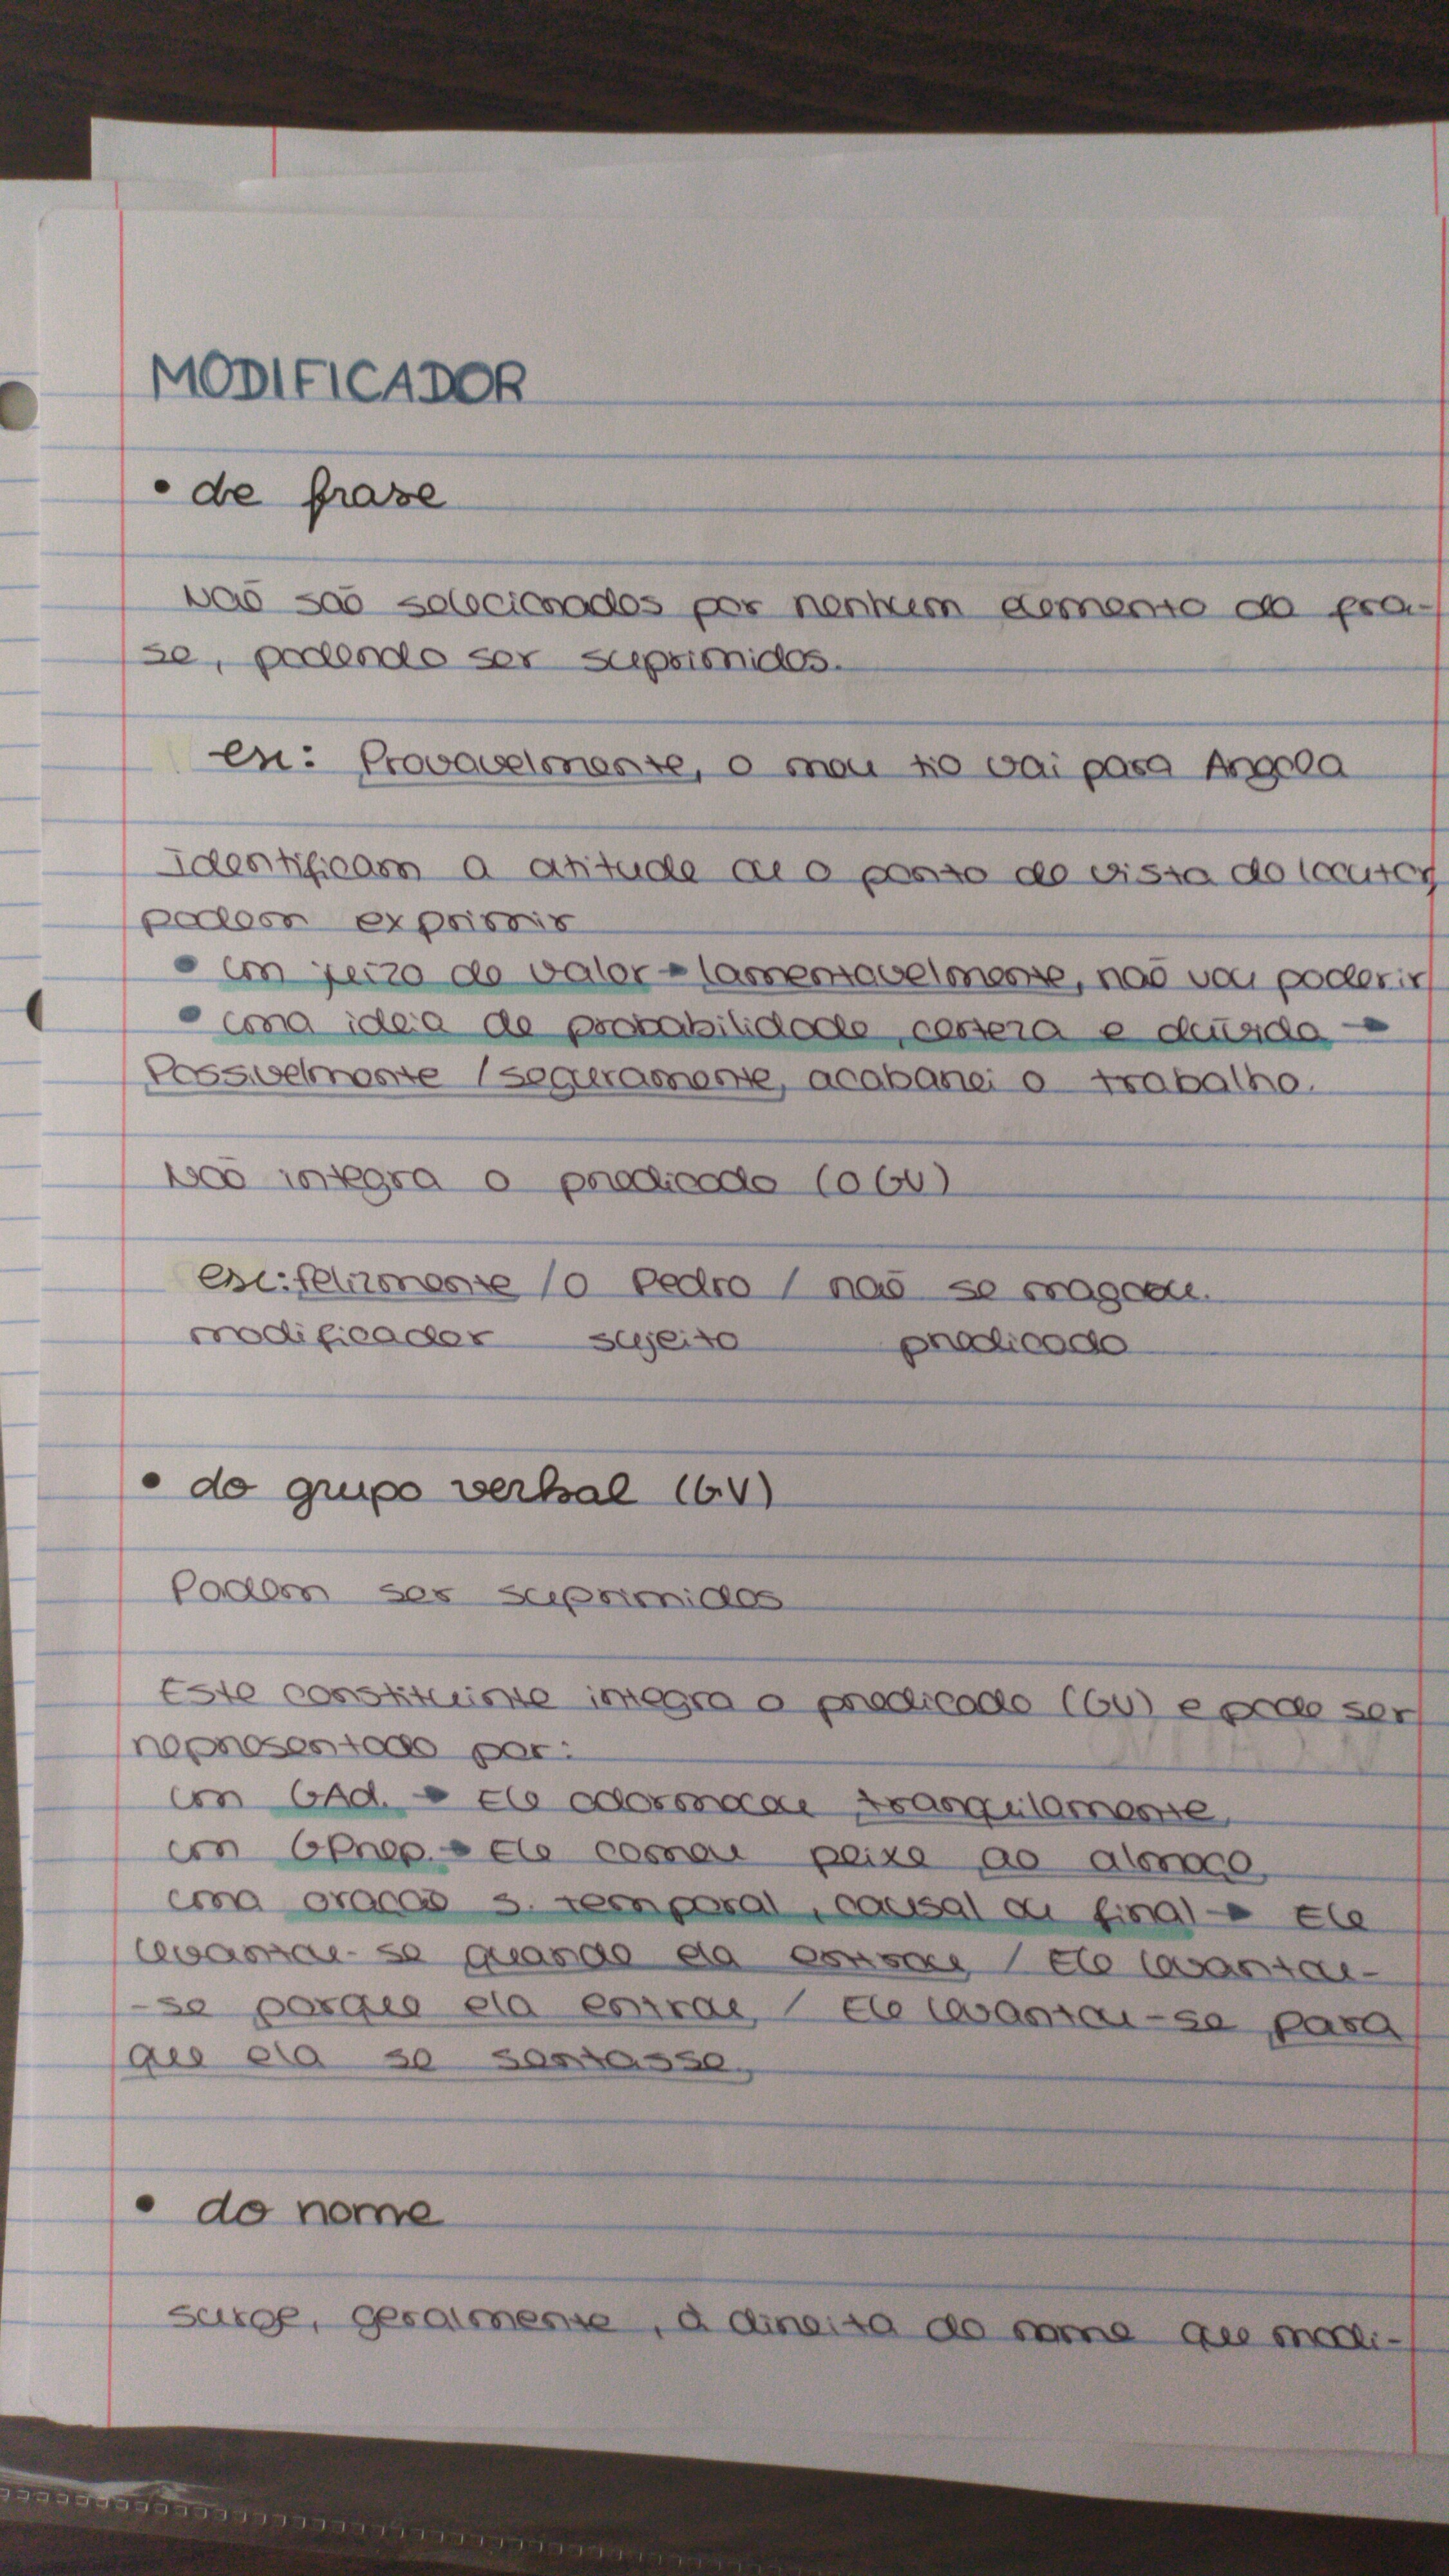 MODIFICADOR
• de frase
Não são selecionados por nenhum elemento da fra-
se, podendo ser suprimidos.
ex: Provavelmente, o meu tio vai para Angola
Identificam a atitude ou o ponto de vista do locutor
podem exprimir
• um juízo de valor → lamentavelmente, não vou poder ir
• uma ideia de probabilidade, certeza e dúvida →
Possivelmente / seguramente, acabarei o trabalho.
Não integra o predicado (o GV)
ex: felizmente / o Pedro / não se magoou.
modificador sujeito predicado
• do grupo verbal (GV)
Podem ser suprimidos
Este constituinte integra o predicado (GV) e pode ser
representado por:
um GAd. → Ele adormeceu tranquilamente,
um GPrep. → Ele comeu peixe ao almoço,
uma oração s. temporal, causal ou final → Ele
levantou-se quando ela entrou, / Ele levantou-
-se porque ela entrou, / Ele levantou-se para
que ela se sentasse,
• do nome
surge, geralmente, à direita do nome que modi-